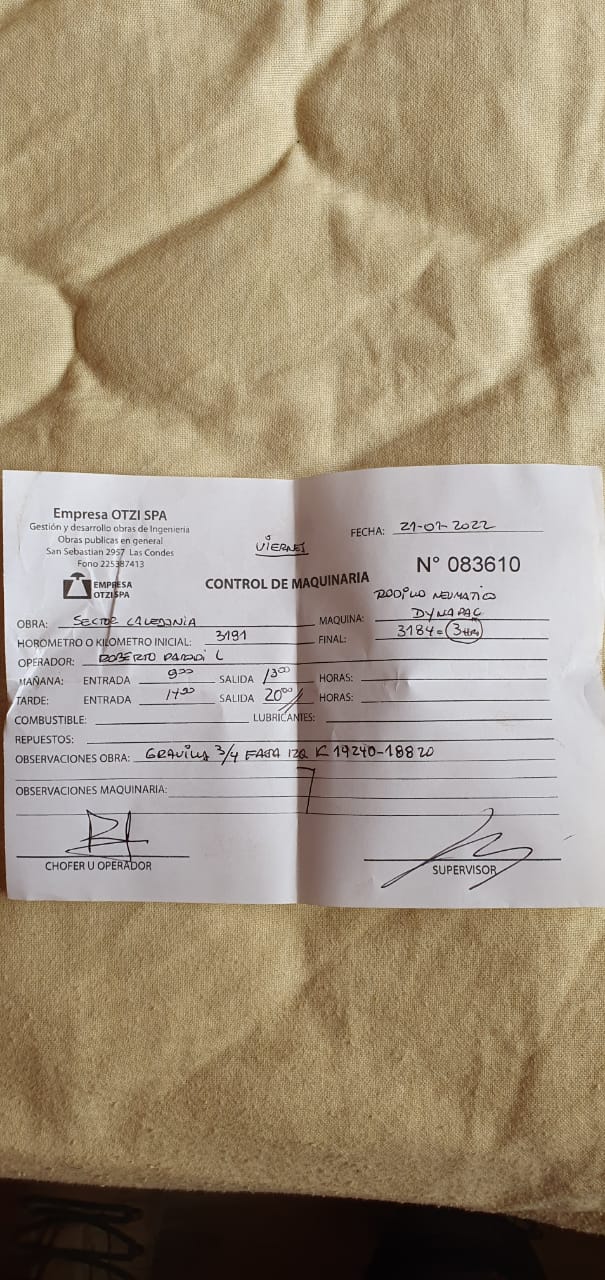 Empresa OTZI SPA
Gestión y desarrollo obras de Ingenieria
Obras publicas en general
San Sebastian 2957 Las Condes
Fono 225387413
EMPRESA
OTZI SPA
VIERNES
FECHA: 21-01-2022
N° 083610
CONTROL DE MAQUINARIA
RODILLO NEUMATICO
OBRA: SECTOR CALEDONIA MAQUINA: DYNAPAC
HOROMETRO O KILOMETRO INICIAL: 3181 FINAL: 3184= 3 HRS
OPERADOR: ROBERTO L
MAÑANA: ENTRADA 9:00 SALIDA 13:00 HORAS:
TARDE: ENTRADA 14:00 SALIDA 20:00 HORAS:
COMBUSTIBLE: LUBRICANTES:
REPUESTOS:
OBSERVACIONES OBRA: GRAVILLA 3/4 FAJA IZQ K 19240-18820
OBSERVACIONES MAQUINARIA:
CHOFER U OPERADOR
SUPERVISOR